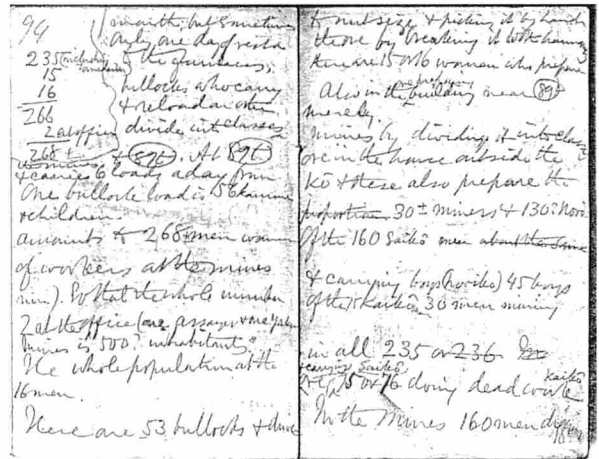 94
month, but sometimes
only one day's rest
of the furnaces,
bullocks who carry
& reload an other
divide into classes
235 including
15
16
266
2 at office
268 +
& (89t). At (89t)
& carries 6 loads a day from
One bullock load is 15 6 kamme
& children.
amounts to 268 + men women
of workers at the mines
men). So that the whole number
2 at the office (one assayer & one
Mines is "500? inhabitants"
The whole population at the
16 men.
There are 53 bullocks & drive
to nut size & picking it by hand
the ore by breaking it with hammer
there are 15 or 16 women who prepare
Also in the preparing building near (89t)
merely.
mines by dividing it into classes
ore in the house outside the
Kō & these also prepare the
proportion 30 ± miners & 130 ±
Of the 160 Saikō men about the same
& carrying boys (horiko) 45 boys
Of the Kaikō 30 men mining
in all 235 or 236 In
& carrying Saikō
75 or 76 doing dead work Kaikō
In the Mines 160 men digging